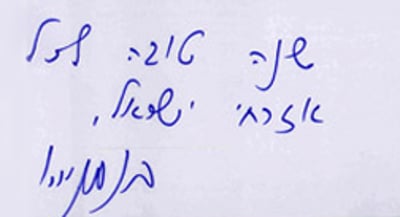 שנה טובה לכל
אזרחי ישראל,